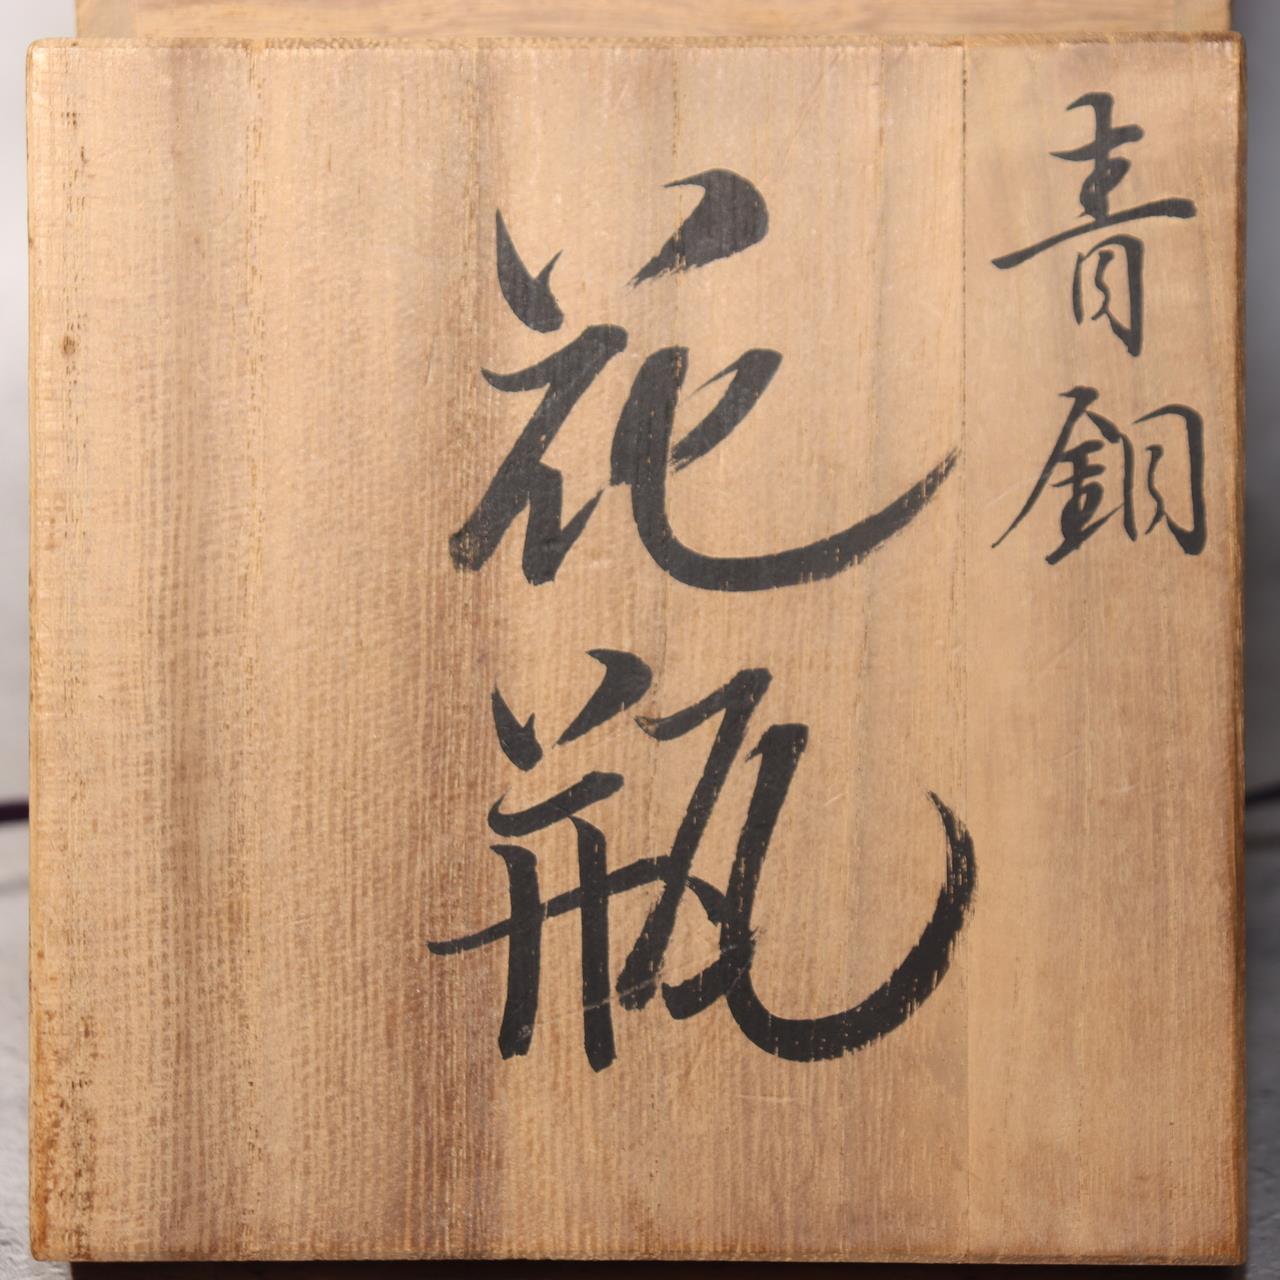 青銅
花瓶